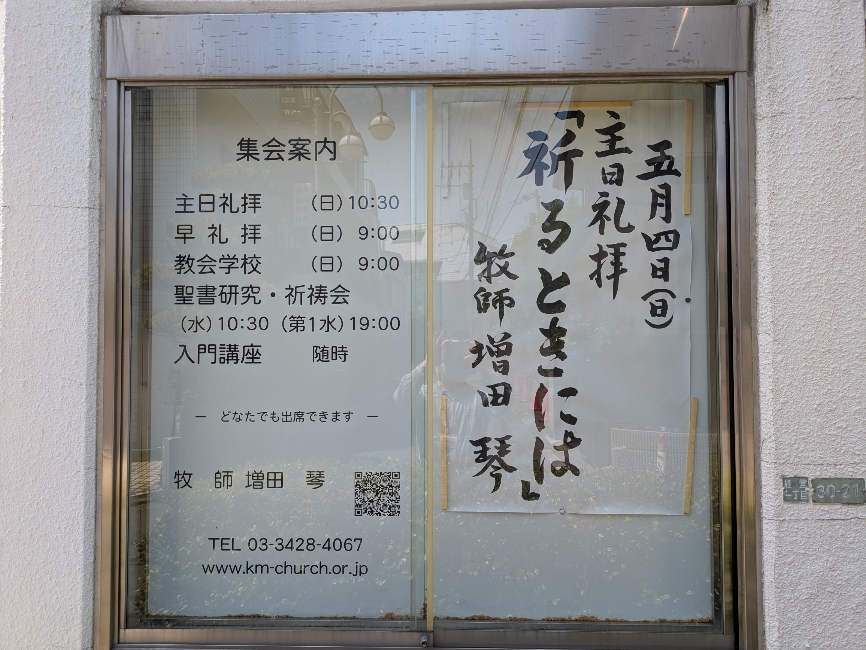 集会案内
主日礼拝 (日) 10:30
早礼拝 (日) 9:00
教会学校 (日) 9:00
聖書研究・祈祷会
(水) 10:30 (第1水) 19:00
入門講座 随時
― どなたでも出席できます ―
牧師 増田 琴
TEL 03-3428-4067
www.km-church.or.jp
五月四日(日)
主日礼拝
「祈るときには」
牧師 増田 琴
30-21